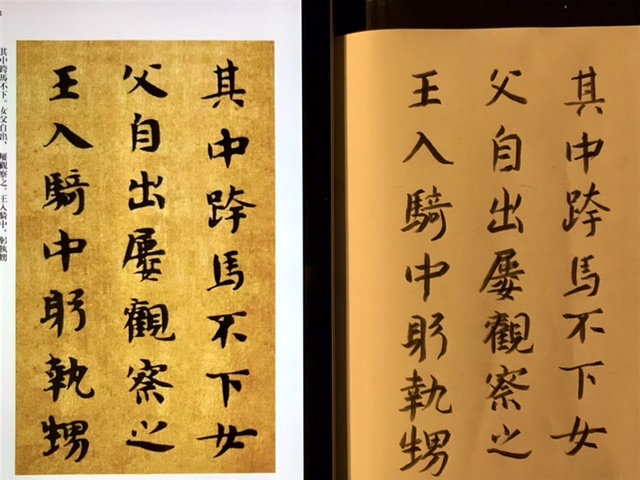 其中跨馬不下女
父自出屢觀察之
王入騎中躬執甥
其中跨馬不下。女父自出，屢觀察之。王入騎中，躬執甥
其中跨馬不下女
父自出屢觀察之
王入騎中躬執甥